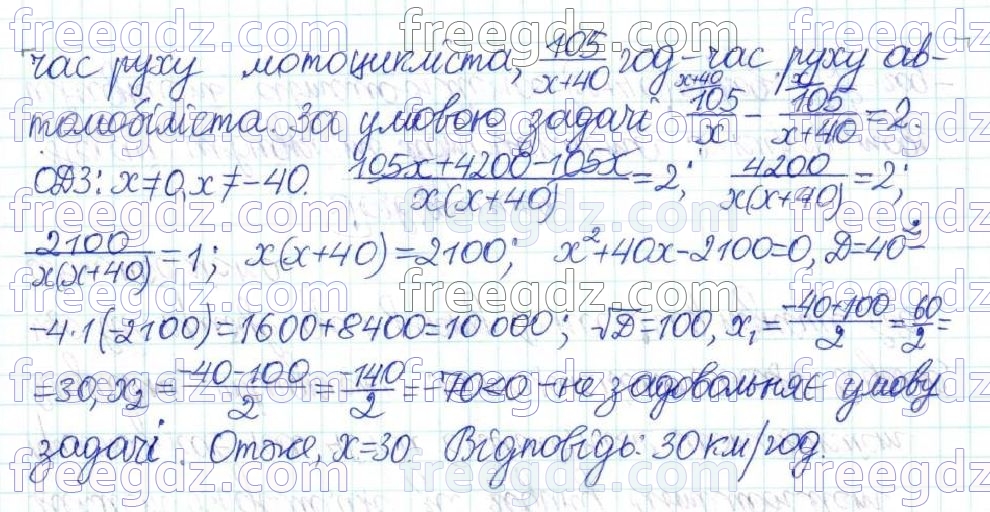 час руху мотоцикліста, 105/(x+40) год - час руху ав-
томобіліста. За умовою задачі 105/x - 105/(x+40) = 2.
ОДЗ: x≠0, x≠-40. (105x+4200-105x)/(x(x+40)) = 2; 4200/(x(x+40)) = 2;
2100/(x(x+40)) = 1; x(x+40) = 2100; x²+40x-2100=0, D=40²-
-4·1(-2100)=1600+8400=10 000; √D=100, x₁ = (-40+100)/2 = 60/2 =
=30, x₂ = (-40-100)/2 = -140/2 = -70<0 - не задовольняє умову
задачі. Отже, x=30. Відповідь: 30 км/год.
freegdz.com